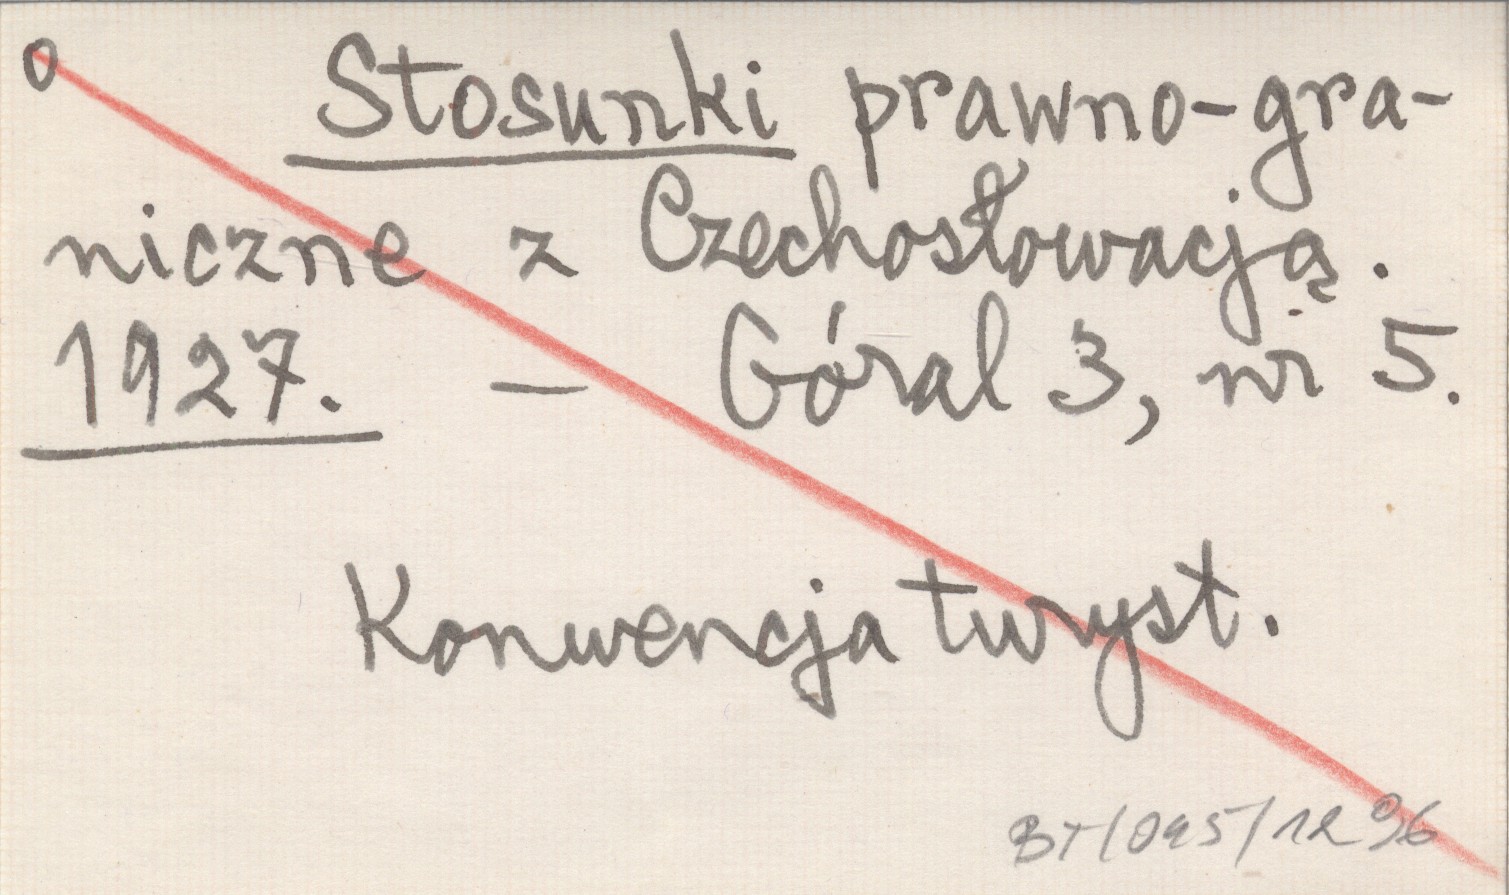 0 Stosunki prawno-gra-
niczne z Czechosłowacją.
1927. — Góral 3, nr 5.
Konwencja turyst.
BT/045/1296